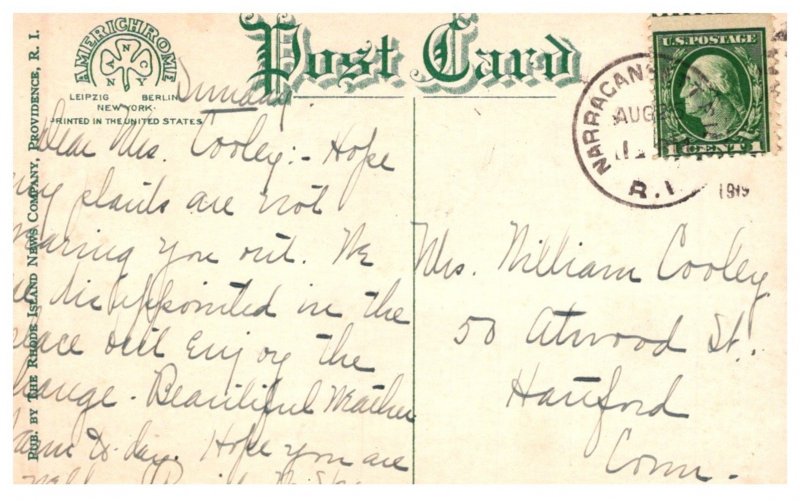 Post Card
AMERICHROME
ANONY
LEIPZIG BERLIN
NEW YORK
PRINTED IN THE UNITED STATES
PUB. BY THE RHODE ISLAND NEWS COMPANY, PROVIDENCE, R. I.
U.S. POSTAGE
CENT
NARRAGANS
AUG
R.I.
1919
Sunday.
Dear Mrs. Cooley:- Hope
my plants are not
wearing you out. We
disappointed in the
place but enjoy the
change. Beautiful weather
to-day. Hope you are
Mrs. William Cooley
50 Atwood St.
Hartford
Conn.